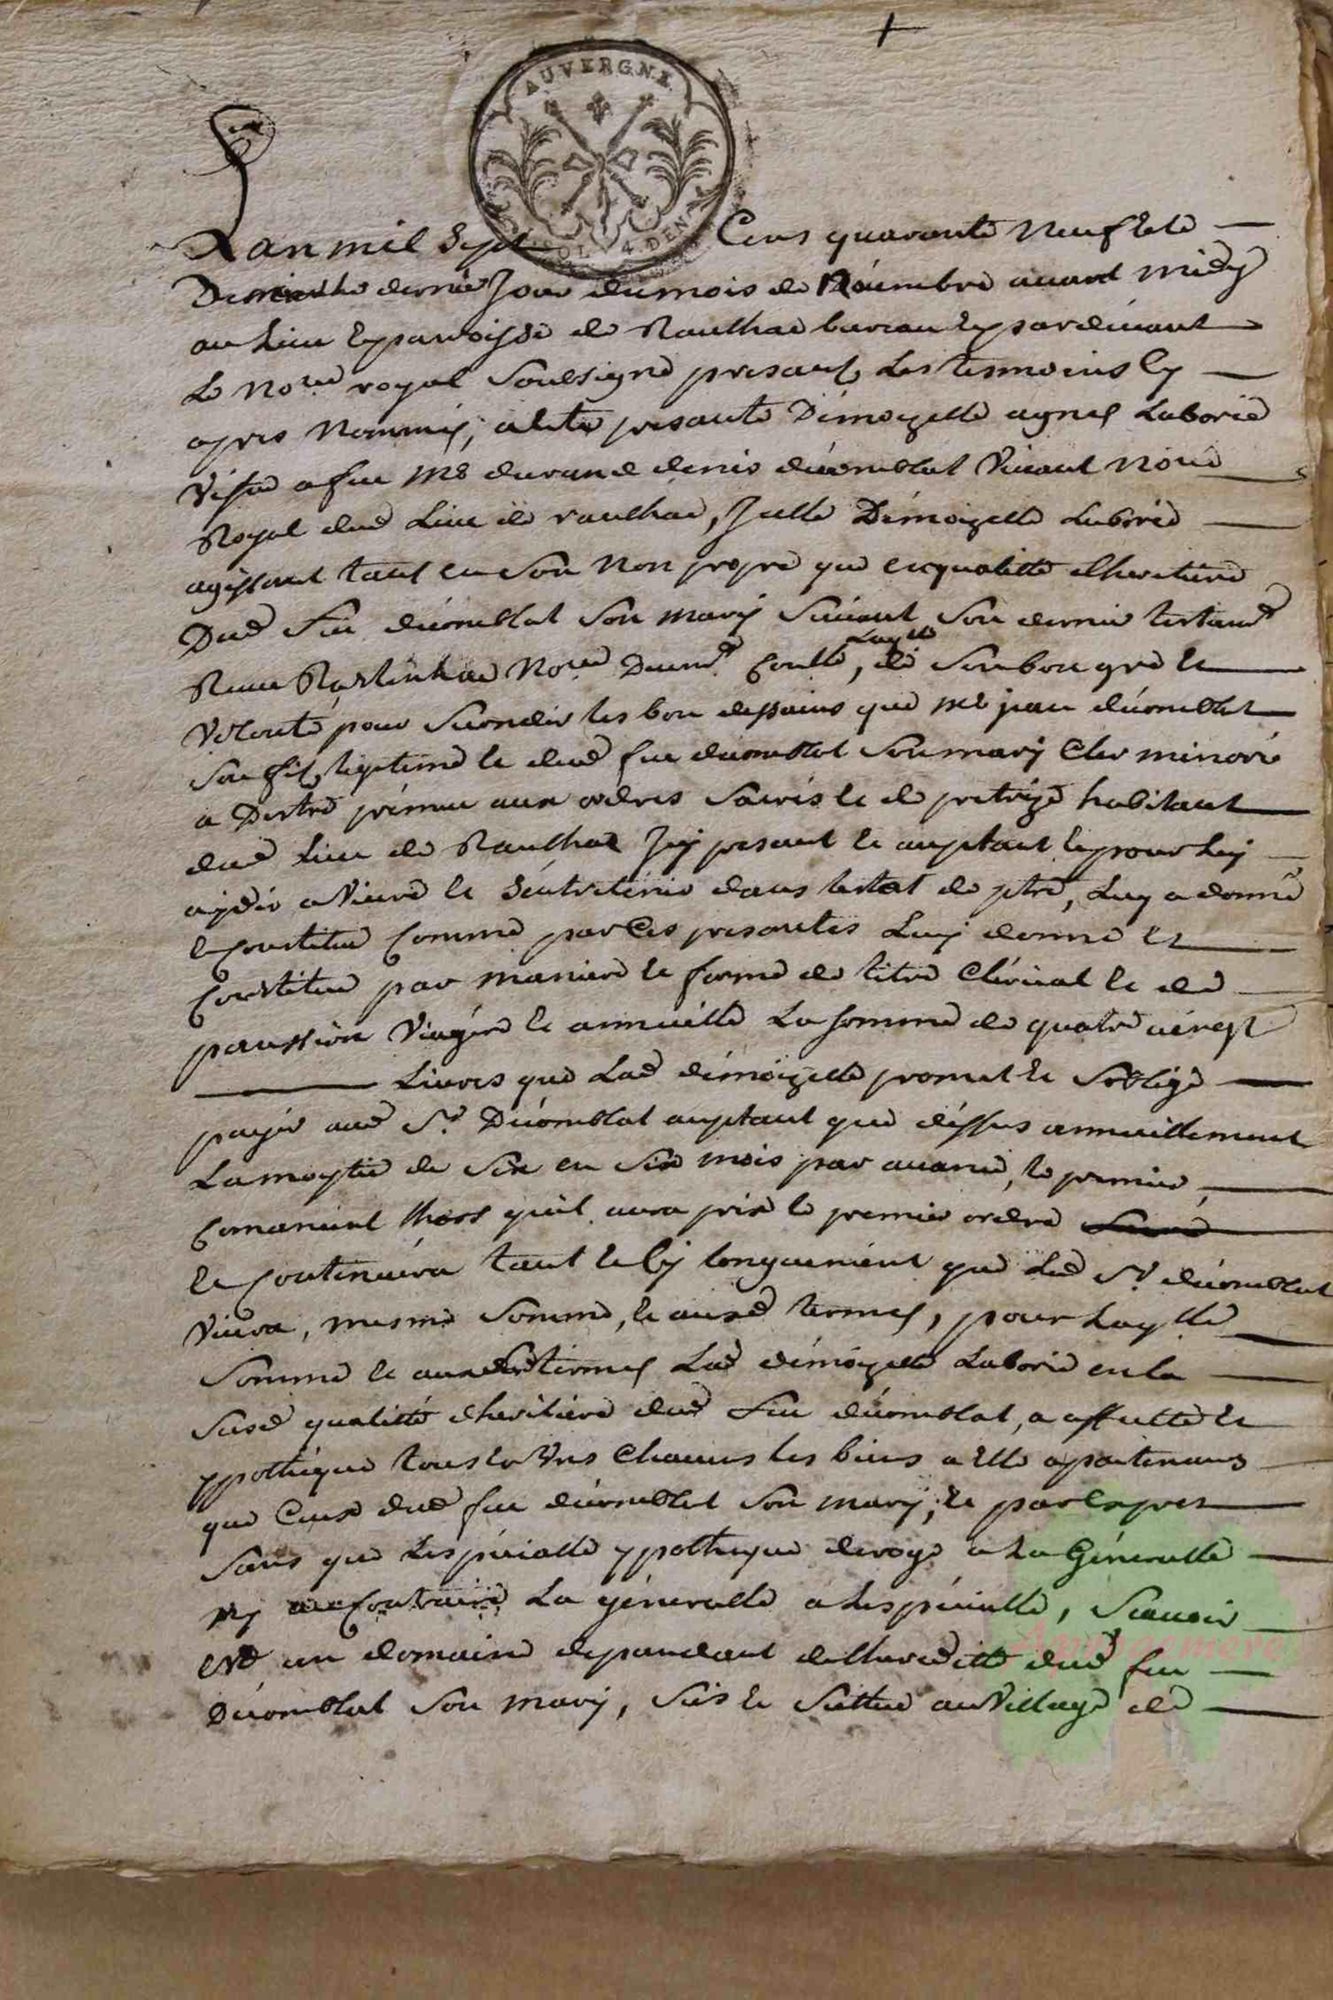 AUVERGNE
4 DEN
L'an mil sept Cens quarante neuf et le
dernier jour du mois de Novembre avant midy
au lieu et parroisse de Raulhac bureau et pardevant
Le No.re royal soussigné presans les tesmoins cy
apres Nommés, a esté presante Démoizelle agnes Laborie
Vefve a feu Me durand denis décomblat Vivant No.re
Royal dud Lieu de raulhac, Jcelle Démoizelle Laborie
agissant tant en son Non propre que en qualitté d'heritiere
Dud feu décomblat son mary suivant son dernier testamt
Receu No.re de son bon gré et
Volonté pour secondér les bon dessains que Me jean décomblat
son fils legitime et dud feu décomblat son mary Clerc minoré
a D'estre prémeu aux ordres sacrés et de pretrize habitant
dud Lieu de Raulhac Jcy presant et aceptant et pour luy
aydér a Vivre et s'entretenir dans l'estat de ptre, Luy a donné
et constitué Comme par Ces presantes Luy donne et
Constitue par maniere et forme de titre Clérical et de
panssion Viagére et annuelle La somme de quatre vingt
Livres que Lad démoizelle promet et s'oblige
payér aud Sr. Décomblat aceptant que déssus annuellement
La moytié de six en six mois par avance, le premier
Comancant lhors qu'il aura prix le premier ordre
et Continuera tant et sy longuement que Led Sr. décomblat
Vivra, mesme somme, et aux termes, pour Laquelle
somme et aux termes Lad démoizelle Laborie en la
susd qualitté d'heritiere dud feu décomblat, a affecté et
ypothéque tous et Uns Chacuns les biens a Elle apartenans
que Ceux dud feu décomblat son mary, et par Expres
sans que L'espécialle ypotheque deroge a La Généralle
ny au Contraire La générallé a L'espécialle, Scavoir
est un domaine depandant de l'hereditté dud feu
Décomblat son mary, sis et sittué au Village de